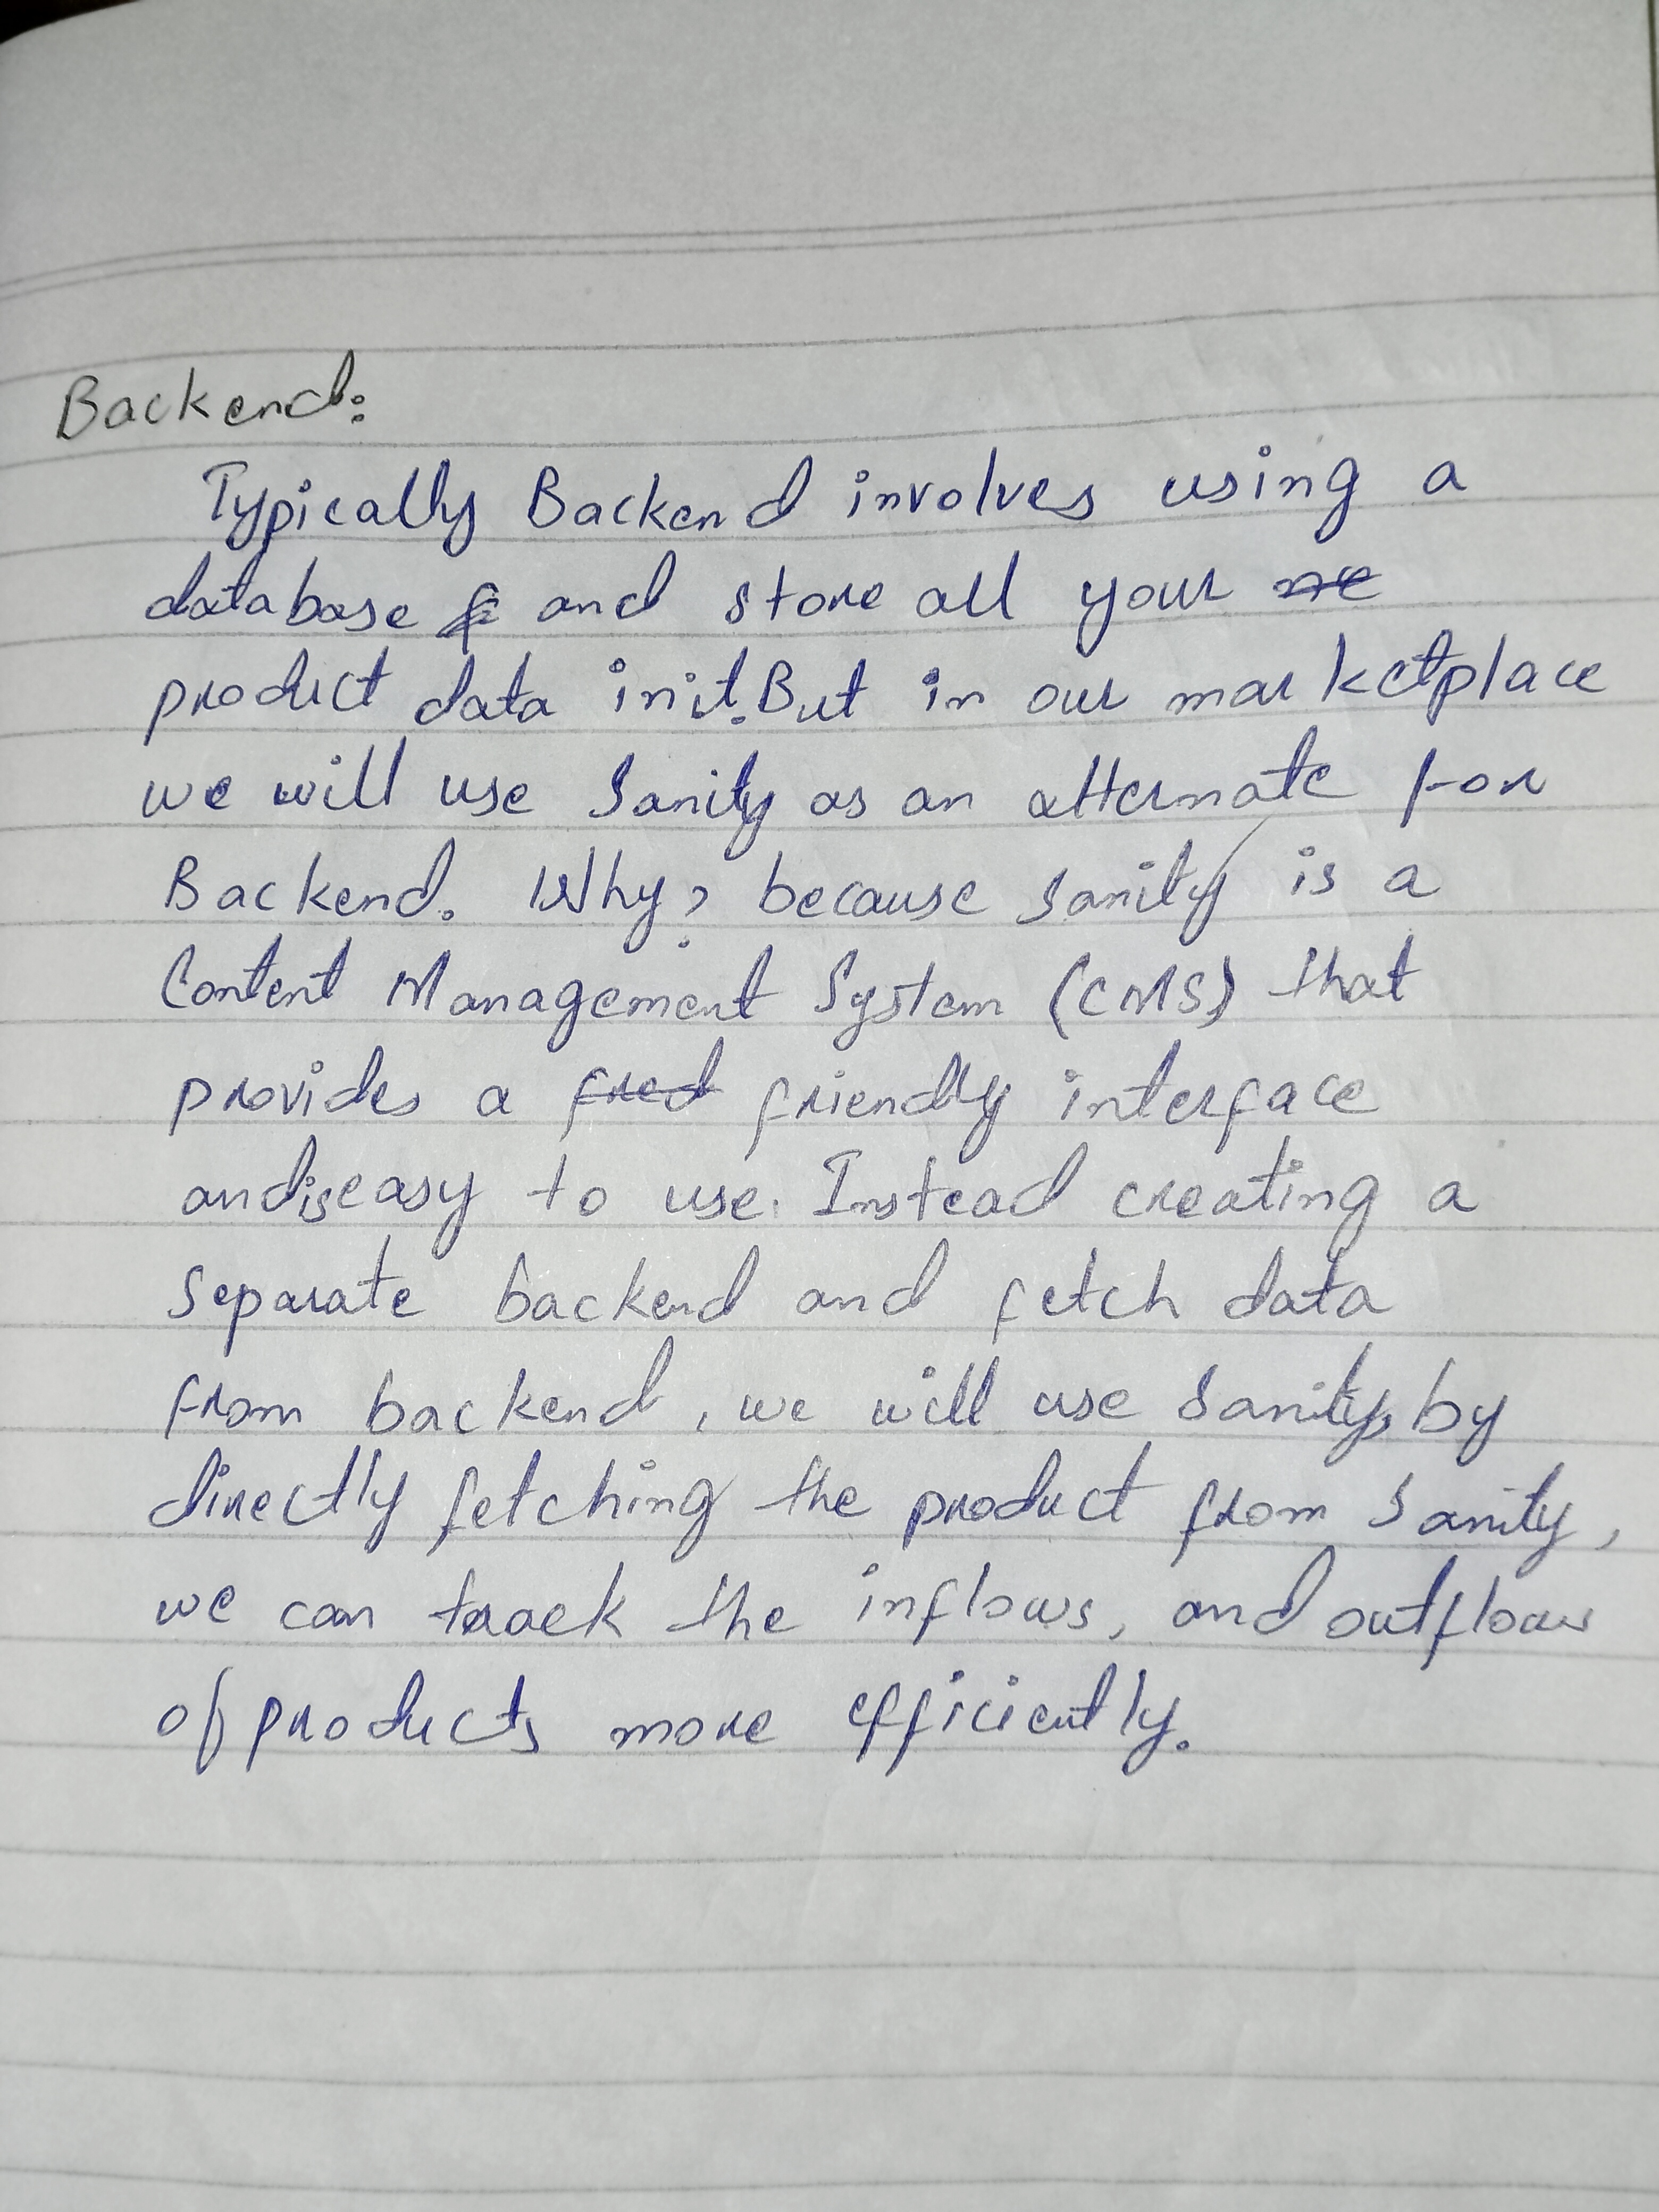 Backend:
Typically Backend involves using a
database and store all your
product data init. But in our marketplace
we will use Sanity as an alternate for
Backend. Why? because Sanity is a
Content Management System (CMS) that
provides a friendly interface
and is easy to use. Instead creating a
Separate backend and fetch data
from backend, we will use Sanity, by
directly fetching the product from Sanity,
we can track the inflows, and outflows
of products more efficiently.